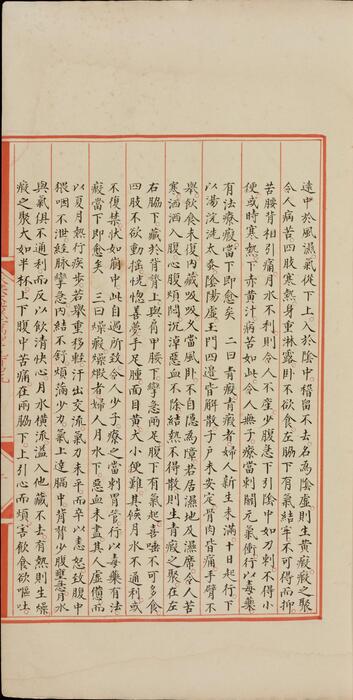 遠中於風濕氣從下上入於陰中稽留不去名為陰虛則生黃瘕瘕之聚
令人病苦四肢寒熱身重淋露卧不欲食左脇下有氣結牢不可得而抑
苦腰背相引痛月水不利則令人不產少腹急下引陰中如刀刺不得小
便或時寒熱下赤黃汁病苦如此令人無子療當刺關元氣衝行以毒藥
有法療瘕當下即愈矣 二曰青瘕青瘕者婦人新生未滿十日起行下
以湯浣洗太養陰陽虛玉門四邊皆解散子户未安定骨肉皆痛手臂不
舉飲食未復內藏吸吸又當風卧不自隱為障若居濕地及濕席令人苦
寒洒洒入腹心腹煩悶沉淖惡血不除結熱不得散則生青瘕瘕之聚在左
右脇下藏於背膂上與肩甲腰下攣急兩足腹下有氣起喜唾不可多食
四肢不欲動搖恍惚善夢手足腫面目黃大小便難其候月水不通利或
不復禁狀如崩中此自過所致令人少子療之當刺胃管行以毒藥有法
瘕當下即愈矣 三曰燥瘕燥瘕者婦人月水下惡血未盡其人虛憊而
以夏月熱行疾步若舉重移輕汗出交流氣力未平而卒以恚怒致腹中
猥咽不泄經脉攣急內結不舒煩滿少力氣上達膈中背膂少腹壅急月水
與氣俱不通利而反以飲清快心月水橫流溢入他藏不去有熱則生燥
瘕之聚大如半杯上下腹中苦痛在兩脇下上引心而煩害飲食欲嘔吐